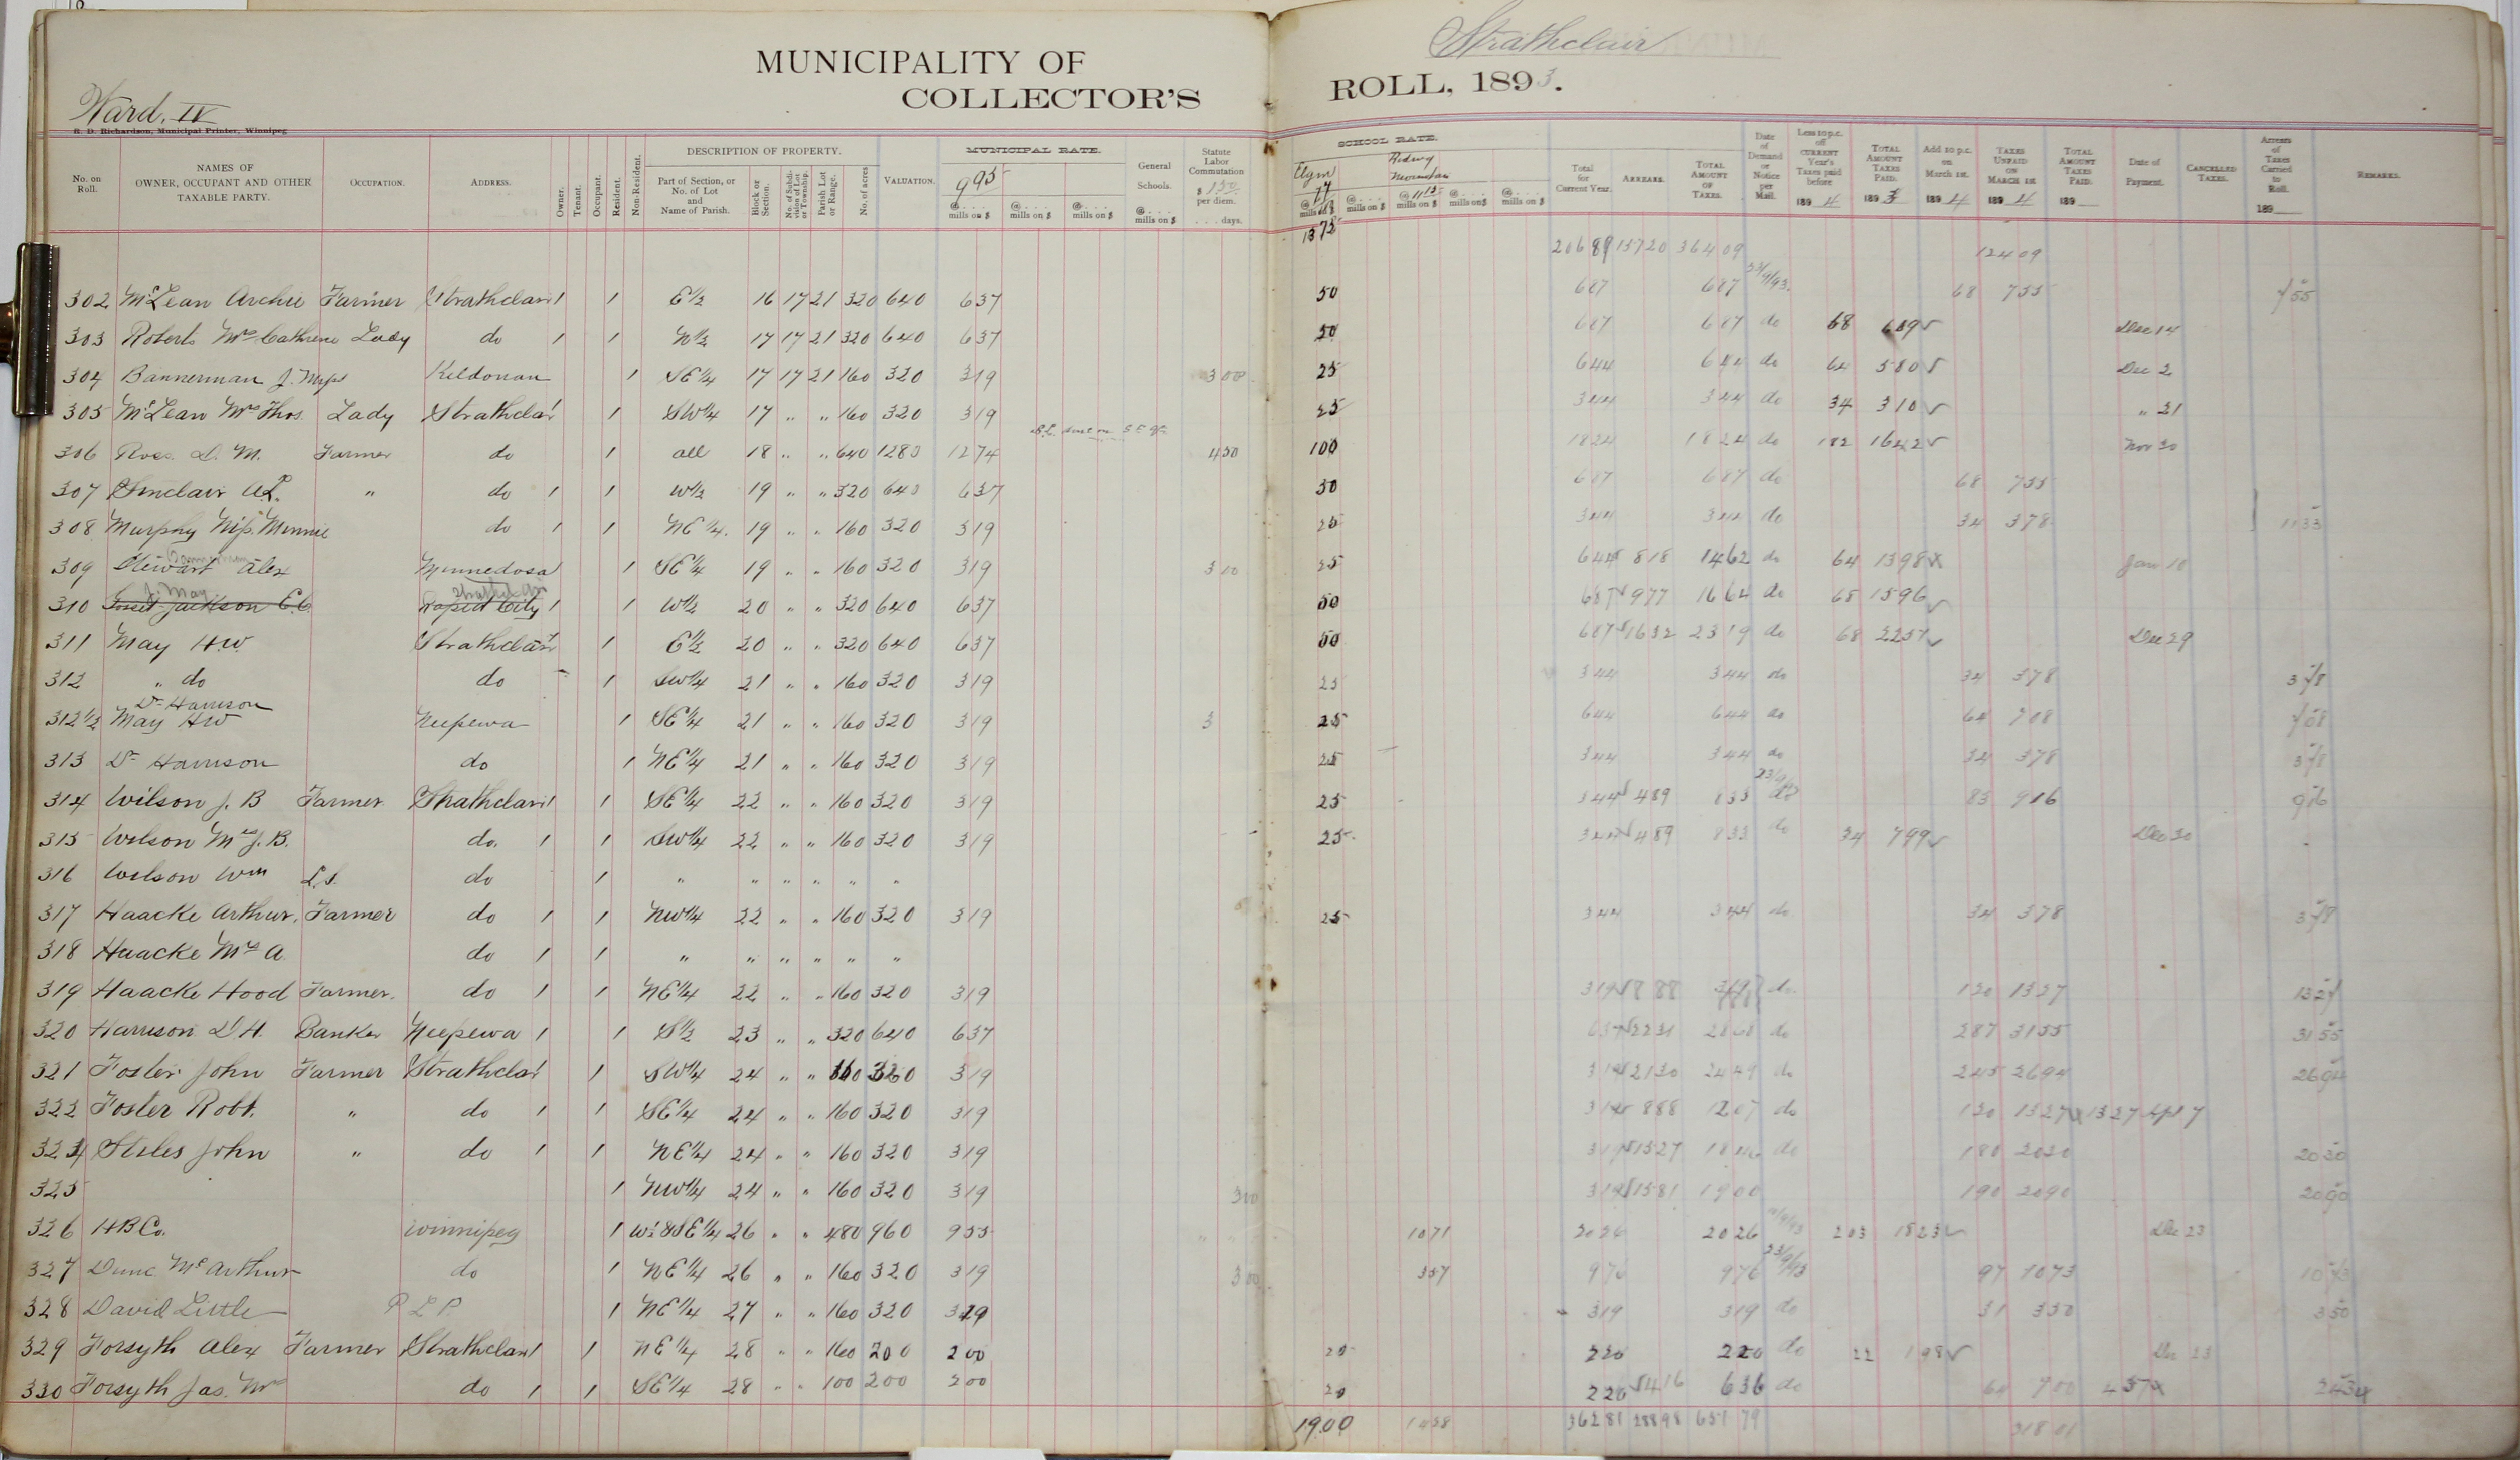 Strathclair
MUNICIPALITY OF
COLLECTOR'S ROLL, 1893.
Ward. IV
S. D. Richardson, Municipal Printer, Winnipeg
No. on Roll. NAMES OF OWNER, OCCUPANT AND OTHER TAXABLE PARTY. OCCUPATION. ADDRESS. Owner. Tenant. Occupant. Resident. Non-Resident. DESCRIPTION OF PROPERTY. Part of Section, or No. of Lot and Name of Parish. Block or Section. No. of Subdivision of Lot or Township. Parish Lot or Range. No. of acres VALUATION. MUNICIPAL RATE. 995 @ . . . mills on $ @ . . . mills on $ @ . . . mills on $ @ . . . mills on $ General Schools. @ . . . mills on $ Statute Labor Commutation $ 150 per diem. . . . . days. SCHOOL RATE. Elgin @ mills on $ @ . . . mills on $ @ 1115 mills on $ @ . . . mills on $ @ . . . mills on $ Total for Current Year. ARREARS. TOTAL AMOUNT OF TAXES. Date of Demand or Notice per Mail. Less 10 p.c. off CURRENT Year's Taxes paid before 1894 TOTAL AMOUNT TAXES PAID. 189 Add 10 p.c. on March 1st. 1894 TAXES UNPAID ON MARCH 1st 1894 TOTAL AMOUNT TAXES PAID. 189 Date of Payment. CANCELLED TAXES. Arrears of Taxes Carried to Roll. 189 REMARKS.
1372 20689 15720 36409 12409
302 McLean Archie Farmer Strathclair 1 1 E½ 16 17 21 320 640 637 50 687 687 23/9/93 68 755 755
303 Roberts Mrs Cathrene Lady do 1 1 N½ 17 17 21 320 640 637 50 687 687 do 68 619 Dec 14
304 Bannerman J. Kildonan 1 SE¼ 17 17 21 160 320 319 300 25 644 644 do 64 580 Dec 2
305 McLean Mrs Thos. Lady Strathclair 1 SW¼ 17 " " 160 320 319 25 344 344 do 34 310 " 21
306 Ross. D. M. Farmer do 1 all 18 " " 640 1280 1274 450 100 1824 1824 do 182 1642 Nov 30
307 Sinclair A.L. " do 1 1 W½ 19 " " 320 640 637 50 687 687 do 68 755
308 Murphy Miss. Minnie do 1 1 NE¼. 19 " " 160 320 319 25 344 344 do 34 378 1133
309 Stewart Alex Minnedosa 1 SE¼ 19 " " 160 320 319 300 25 644 818 1462 do 64 1398 Jan 10
J. May Strathclair
310 Jackson E.C. Rapid City 1 1 W½ 20 " " 320 640 637 50 687 977 1664 do 68 1596
311 May H.W. Strathclair 1 1 E½ 20 " " 320 640 637 50 687 1632 2319 do 68 2251 Dec 29
312 " do do 1 SW¼ 21 " " 160 320 319 25 344 344 do 34 378 378
Dr Harrison
312½ May HW Neepewa 1 SE¼ 21 " " 160 320 319 3 25 644 644 do 64 708 708
313 Dr Harrison do 1 NE¼ 21 " " 160 320 319 25 344 344 do 34 378 378
314 Wilson J. B Farmer Strathclair 1 1 SE¼ 22 " " 160 320 319 25 344 489 833 do 83 916 916
315 Wilson Mrs J. B. do. 1 1 SW¼ 22 " " 160 320 319 25 344 489 833 do 34 799 Dec 30
316 Wilson Wm L.S. do 1 " " " " " "
317 Haacke Arthur. Farmer do 1 1 NW¼ 22 " " 160 320 319 25 344 344 do 34 378 378
318 Haacke Mrs A. do 1 1 " " " " " "
319 Haacke Hood Farmer. do 1 1 NE¼ 22 " " 160 320 319 319 888 do. 120 1327 1327
320 Harrison D.H. Banker Neepewa 1 1 S½ 23 " " 320 640 637 637 2231 2868 do 287 3155 3155
321 Foster John Farmer Strathclair 1 SW¼ 24 " " 160 320 319 319 2130 2449 do 245 2694 2694
322 Foster Robt. " do 1 1 SE¼ 24 " " 160 320 319 319 888 1207 do 120 1327 1327 Apl 7
324 Stiles John " do 1 1 NE¼ 24 " " 160 320 319 319 1527 1846 do 180 2030 2030
325 1 NW¼ 24 " " 160 320 319 300 319 1581 1900 190 2090 2090
326 H B Co. Winnipeg 1 W½ & SE¼ 26 " " 480 960 955 1071 2026 2026 203 1823 Dec 23
327 Dunc McArthur do 1 NE¼ 26 " " 160 320 319 300 357 976 976 23/9/93 97 1073 1073
328 David Little P L P. 1 NE¼ 27 " " 160 320 319 319 319 do 31 350 350
329 Forsyth Alex Farmer Strathclair 1 1 NE¼ 28 " " 160 200 200 20 220 220 do 22 198 Dec 23
330 Forsyth Jas. Mrs do 1 1 SE¼ 28 " " 100 200 200 20 220 416 636 do 64 700 2434
1900 1428 36281 28898 65179 31801